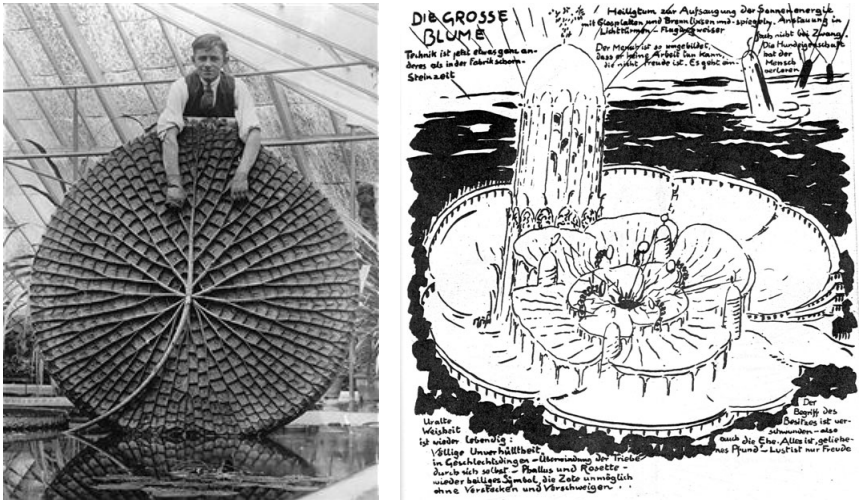 DIE GROSSE
BLUME
Technik ist jetzt etwas ganz an-
deres als in der Fabrikschorn-
Steinzeit
Heiligtum zur Aufsaugung der Sonnenenergie
mit Glasplatten und Brennlinsen und -spiegeln. Anstauung in
Lichttürmen - Flugwegweiser
Der Mensch ist so umgebildet,
dass er keine Arbeit tun kann,
die nicht Freude ist. Es geht ein-
fach nicht bei Zwang.
Die Hundeigenschaft
hat der
Mensch
verloren
Uralte
Weisheit
ist wieder lebendig:
Völlige Unverhülltheit
in Geschlechtsdingen - Überwindung der Triebe
durch sich selbst - Phallus und Rosette -
wieder heiliges Symbol, die Zote unmöglich
ohne Verstecken und Verschweigen . . .
Der
Begriff des
Besitzes ist ver-
schwunden - also
auch die Ehe. Alles ist geliehe-
nes Pfund - Lust ist nur Freude